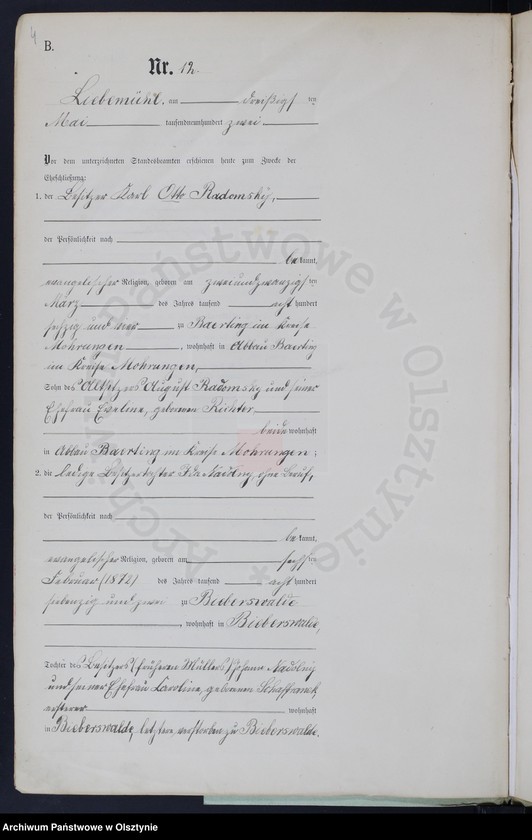 4
B.
Nr. 12.
Liebemühl, am dreißigs ten
Mai tausendneunhundert zwei
Vor dem unterzeichneten Standesbeamten erschienen heute zum Zwecke der
Eheschließung:
1. der Besitzer Karl Otto Radomsky,
der Persönlichkeit nach
be kannt,
evangelischer Religion, geboren am zweiundzwanzigs ten
März des Jahres tausend acht hundert
sechzig und vier zu Baerting im Kreise
Mohrungen, wohnhaft in Abbau Baerting
im Kreise Mohrungen,
Sohn des Altsitzers August Radomsky und seiner
Ehefrau Eveline, geborenen Richter,
beide wohnhaft
in Abbau Baerting im Kreise Mohrungen;
2. die ledige Besitzertochter Ida Nadolny, ohne Beruf,
der Persönlichkeit nach
be kannt,
evangelischer Religion, geboren am sechs ten
Februar (1872) des Jahres tausend acht hundert
siebenzig und zwei zu Bieberswalde
, wohnhaft in Bieberswalde,
Tochter des Besitzers (früheren Müllers) Johann Nadolny
und seiner Ehefrau Caroline, geborenen Schaffranek,
ersterer wohnhaft
in Bieberswalde, letztere verstorben zu Bieberswalde.
Archiwum Państwowe w Olsztynie
Archiwum Państwowe w Olsztynie